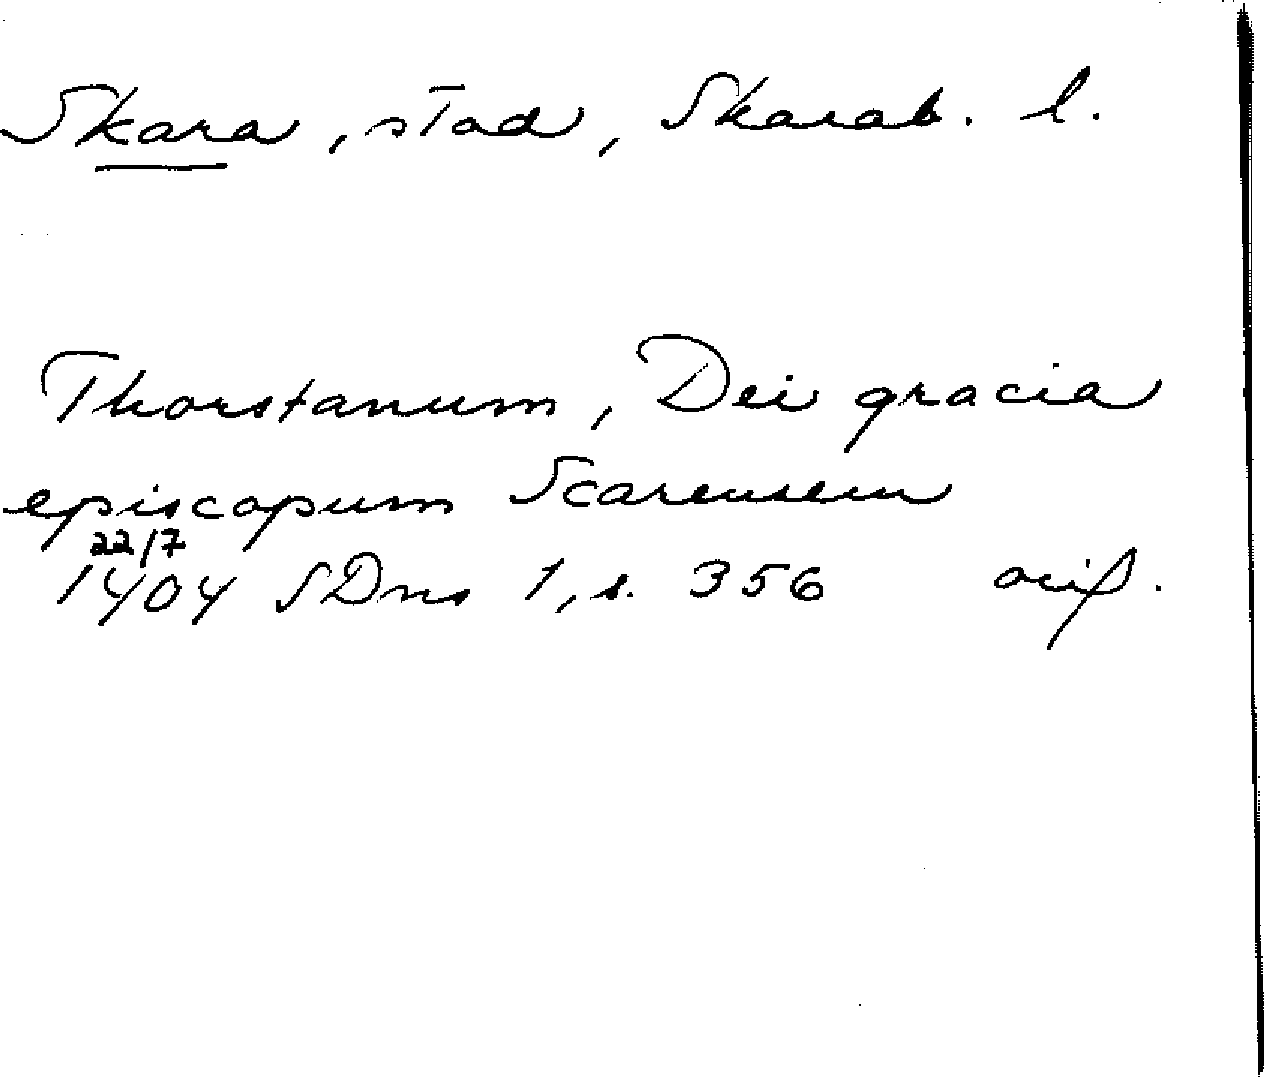 Skara, stad, Skarab. l.
Thorstanum, Dei gracia
episcopum Scarensem
22/7
1404 SDns 1, s. 356 avskr.